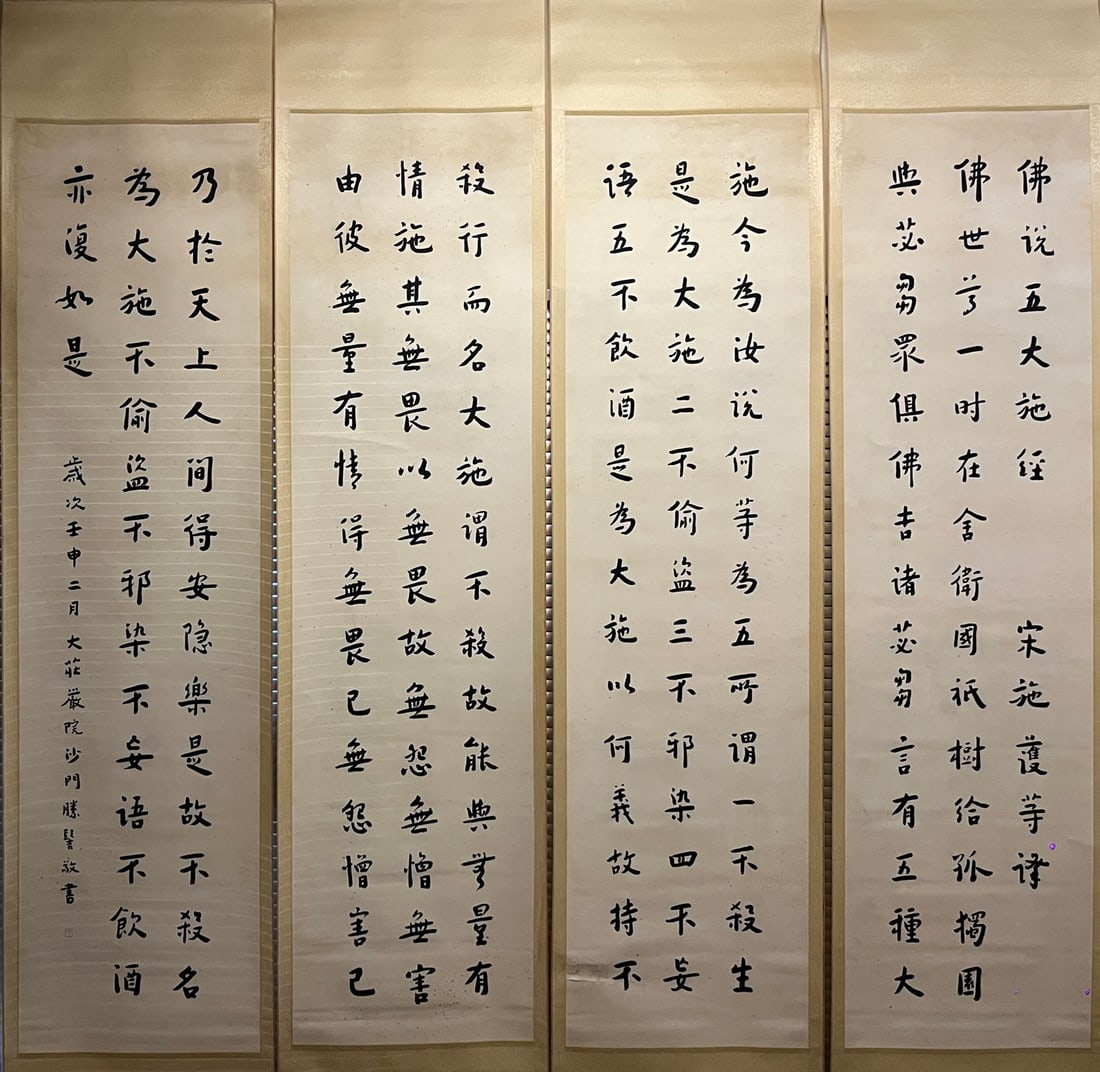 佛說五大施經 宋施護等譯
佛世尊一時在舍衛國祇樹給孤獨園
與苾芻眾俱佛告諸苾芻言有五種大
施今為汝說何等為五所謂一不殺生
是為大施二不偷盜三不邪染四不妄
語五不飲酒是為大施以何義故持不
殺行而名大施謂不殺故能與無量有
情施其無畏以無畏故無怨無憎無害
由彼無量有情得無畏已無怨憎害已
乃於天上人間得安隱樂是故不殺名
為大施不偷盜不邪染不妄語不飲酒
亦復如是
歲次壬申二月大莊嚴院沙門勝髻敬書